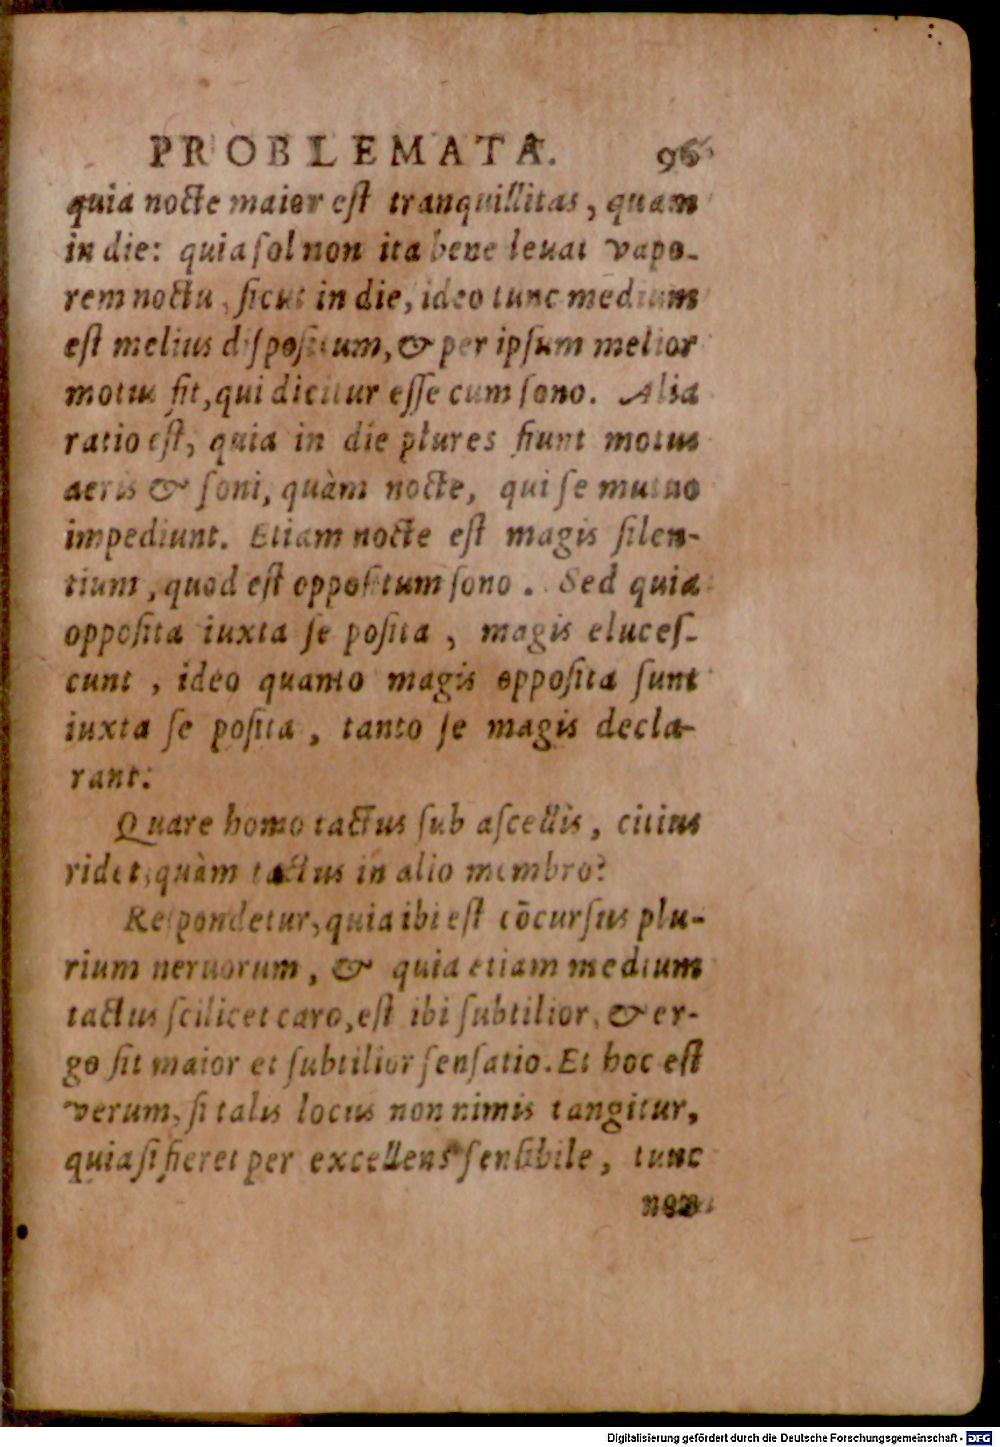 PROBLEMATA. 96
quia nocte maior est tranquillitas, quam
in die: quia sol non ita bene leuat vapo-
rem noctu, sicut in die, ideo tunc medium
est melius dispositum, & per ipsum melior
motus fit, qui dicitur esse cum sono. Alia
ratio est, quia in die plures fiunt motus
aeris & soni, quàm nocte, qui se mutuo
impediunt. Etiam nocte est magis silen-
tium, quod est oppositum sono. Sed quia
opposita iuxta se posita, magis eluces-
cunt, ideo quanto magis opposita sunt
iuxta se posita, tanto se magis decla-
rant.
Quare homo tactus sub ascellis, citius
ridet, quàm tactus in alio membro?
Respondetur, quia ibi est cōcursus plu-
rium neruorum, & quia etiam medium
tactus scilicet caro, est ibi subtilior, & er-
go fit maior et subtilior sensatio. Et hoc est
verum, si talis locus non nimis tangitur,
quia si fieret per excellens sensibile, tunc
non
Digitalisierung gefördert durch die Deutsche Forschungsgemeinschaft - DFG